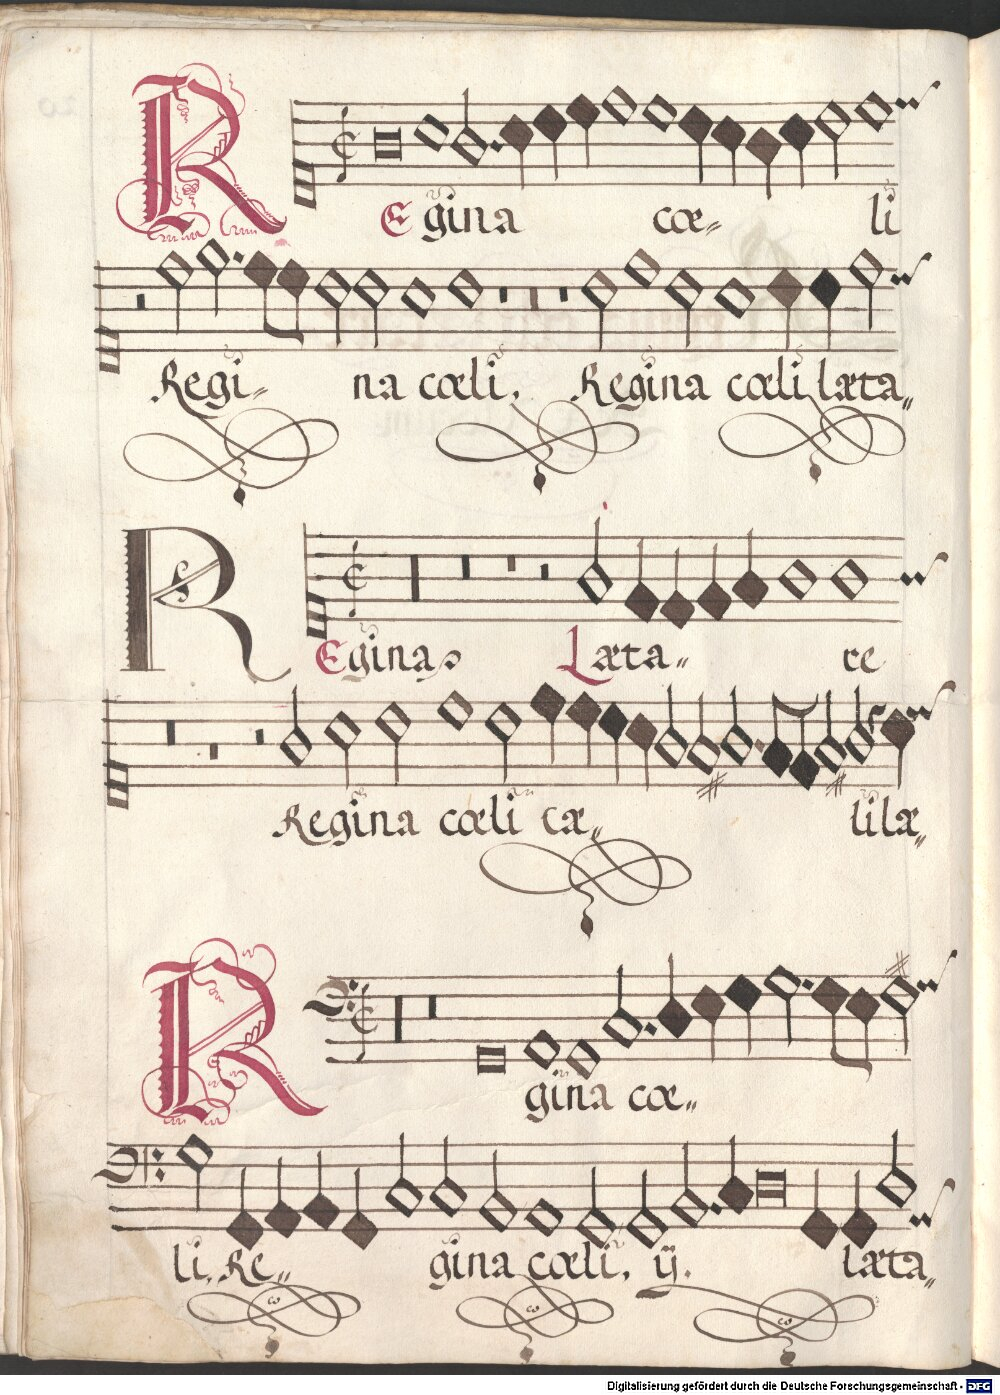 REgina cœ li
Regi na cœli, Regina cœli læta
REgina Læta re
Regina cœli cæ li læ
R gina cœ
li, Re gina cœli, ij. læta
Digitalisierung gefördert durch die Deutsche Forschungsgemeinschaft - DFG